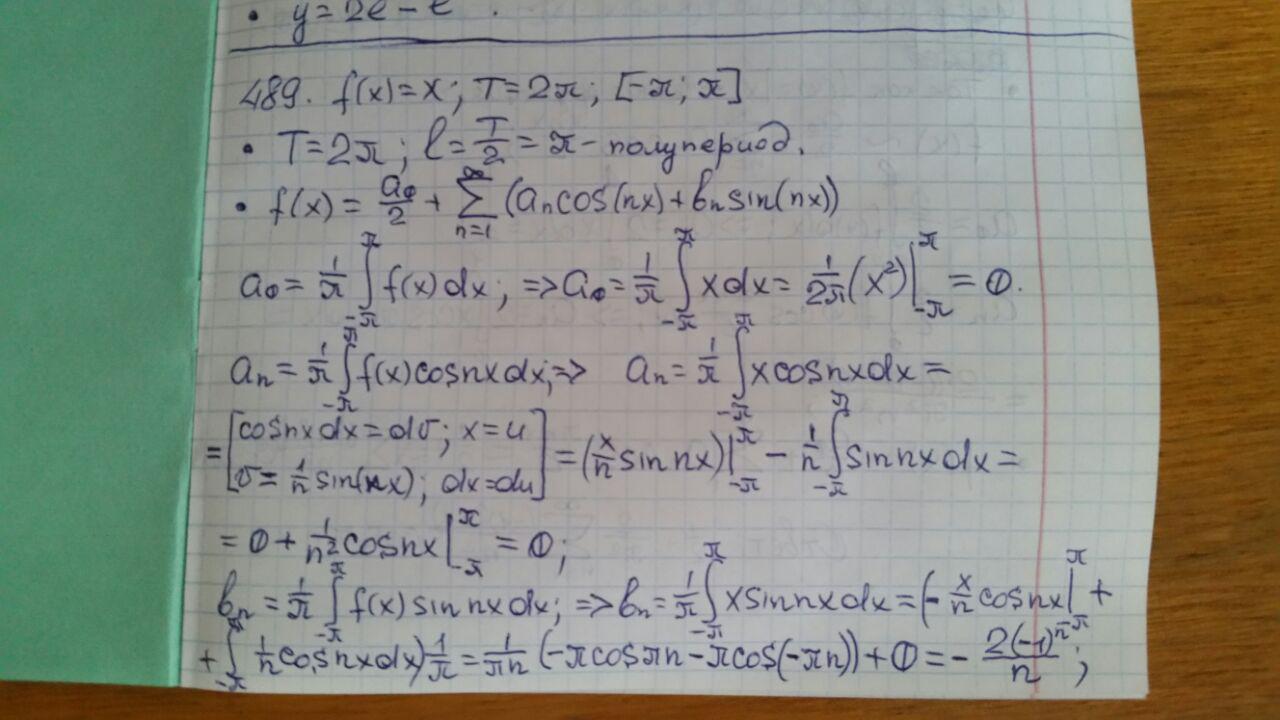 • y = 2e - e .
489. f(x) = x; T = 2π; [-π; π]
• T = 2π; l = T/2 = π - полупериод.
• f(x) = a₀/2 + ∑_{n=1}^{∞} (aₙcos(nx) + bₙsin(nx))
a₀ = 1/π ∫_{-π}^{π} f(x)dx; ⇒ a₀ = 1/π ∫_{-π}^{π} xdx = 1/2π (x²)|_{-π}^{π} = 0.
aₙ = 1/π ∫_{-π}^{π} f(x)cosnxdx; ⇒ aₙ = 1/π ∫_{-π}^{π} xcosnxdx =
= [cosnxdx = dv; x = u
v = 1/n sin(nx); dx = du] = (x/n sin nx)|_{-π}^{π} - 1/n ∫_{-π}^{π} sin nxdx =
= 0 + 1/n² cosnx |_{-π}^{π} = 0;
bₙ = 1/π ∫_{-π}^{π} f(x)sin nxdx; ⇒ bₙ = 1/π ∫_{-π}^{π} xsinnxdx = (-x/n cosnx|_{-π}^{π} +
+ ∫_{-π}^{π} 1/n cosnxdx) 1/π = 1/πn (-πcosπn - πcos(-πn)) + 0 = - 2(-1)ⁿ/n ;